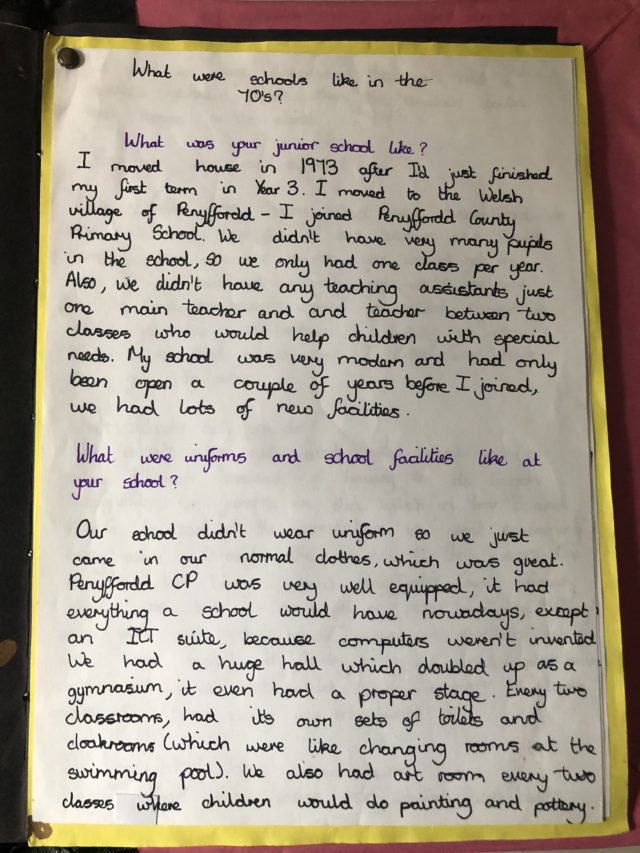 What were schools like in the
70's?
What was your junior school like?
I moved house in 1973 after I'd just finished
my first term in Year 3. I moved to the Welsh
village of Penyffordd - I joined Penyffordd County
Primary School. We didn't have very many pupils
in the school, so we only had one class per year.
Also, we didn't have any teaching assistants just
one main teacher and and teacher between two
classes who would help children with special
needs. My school was very modern and had only
been open a couple of years before I joined,
we had lots of new facilities.
What were uniforms and school facilities like at
your school?
Our school didn't wear uniform so we just
came in our normal clothes, which was great.
Penyffordd CP was very well equipped, it had
everything a school would have nowadays, except
an ICT suite, because computers weren't invented
We had a huge hall which doubled up as a
gymnasium, it even had a proper stage. Every two
classrooms, had it's own sets of toilets and
cloakrooms (which were like changing rooms at the
swimming pool). We also had art room every two
classes where children would do painting and pottery.